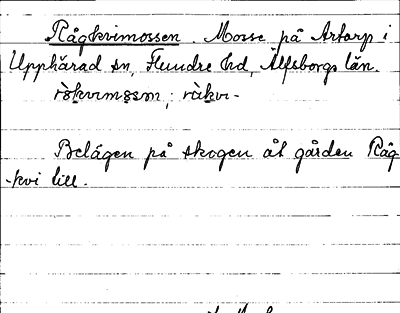 Rågkvimossen. Mosse på Artorp i
Upphärad sn, Flundre hd, Älfsborgs län.
rò̱kvımo̱sm; rà̱kvı-
Belägen på skogen åt gården Råg-
-kvi till.